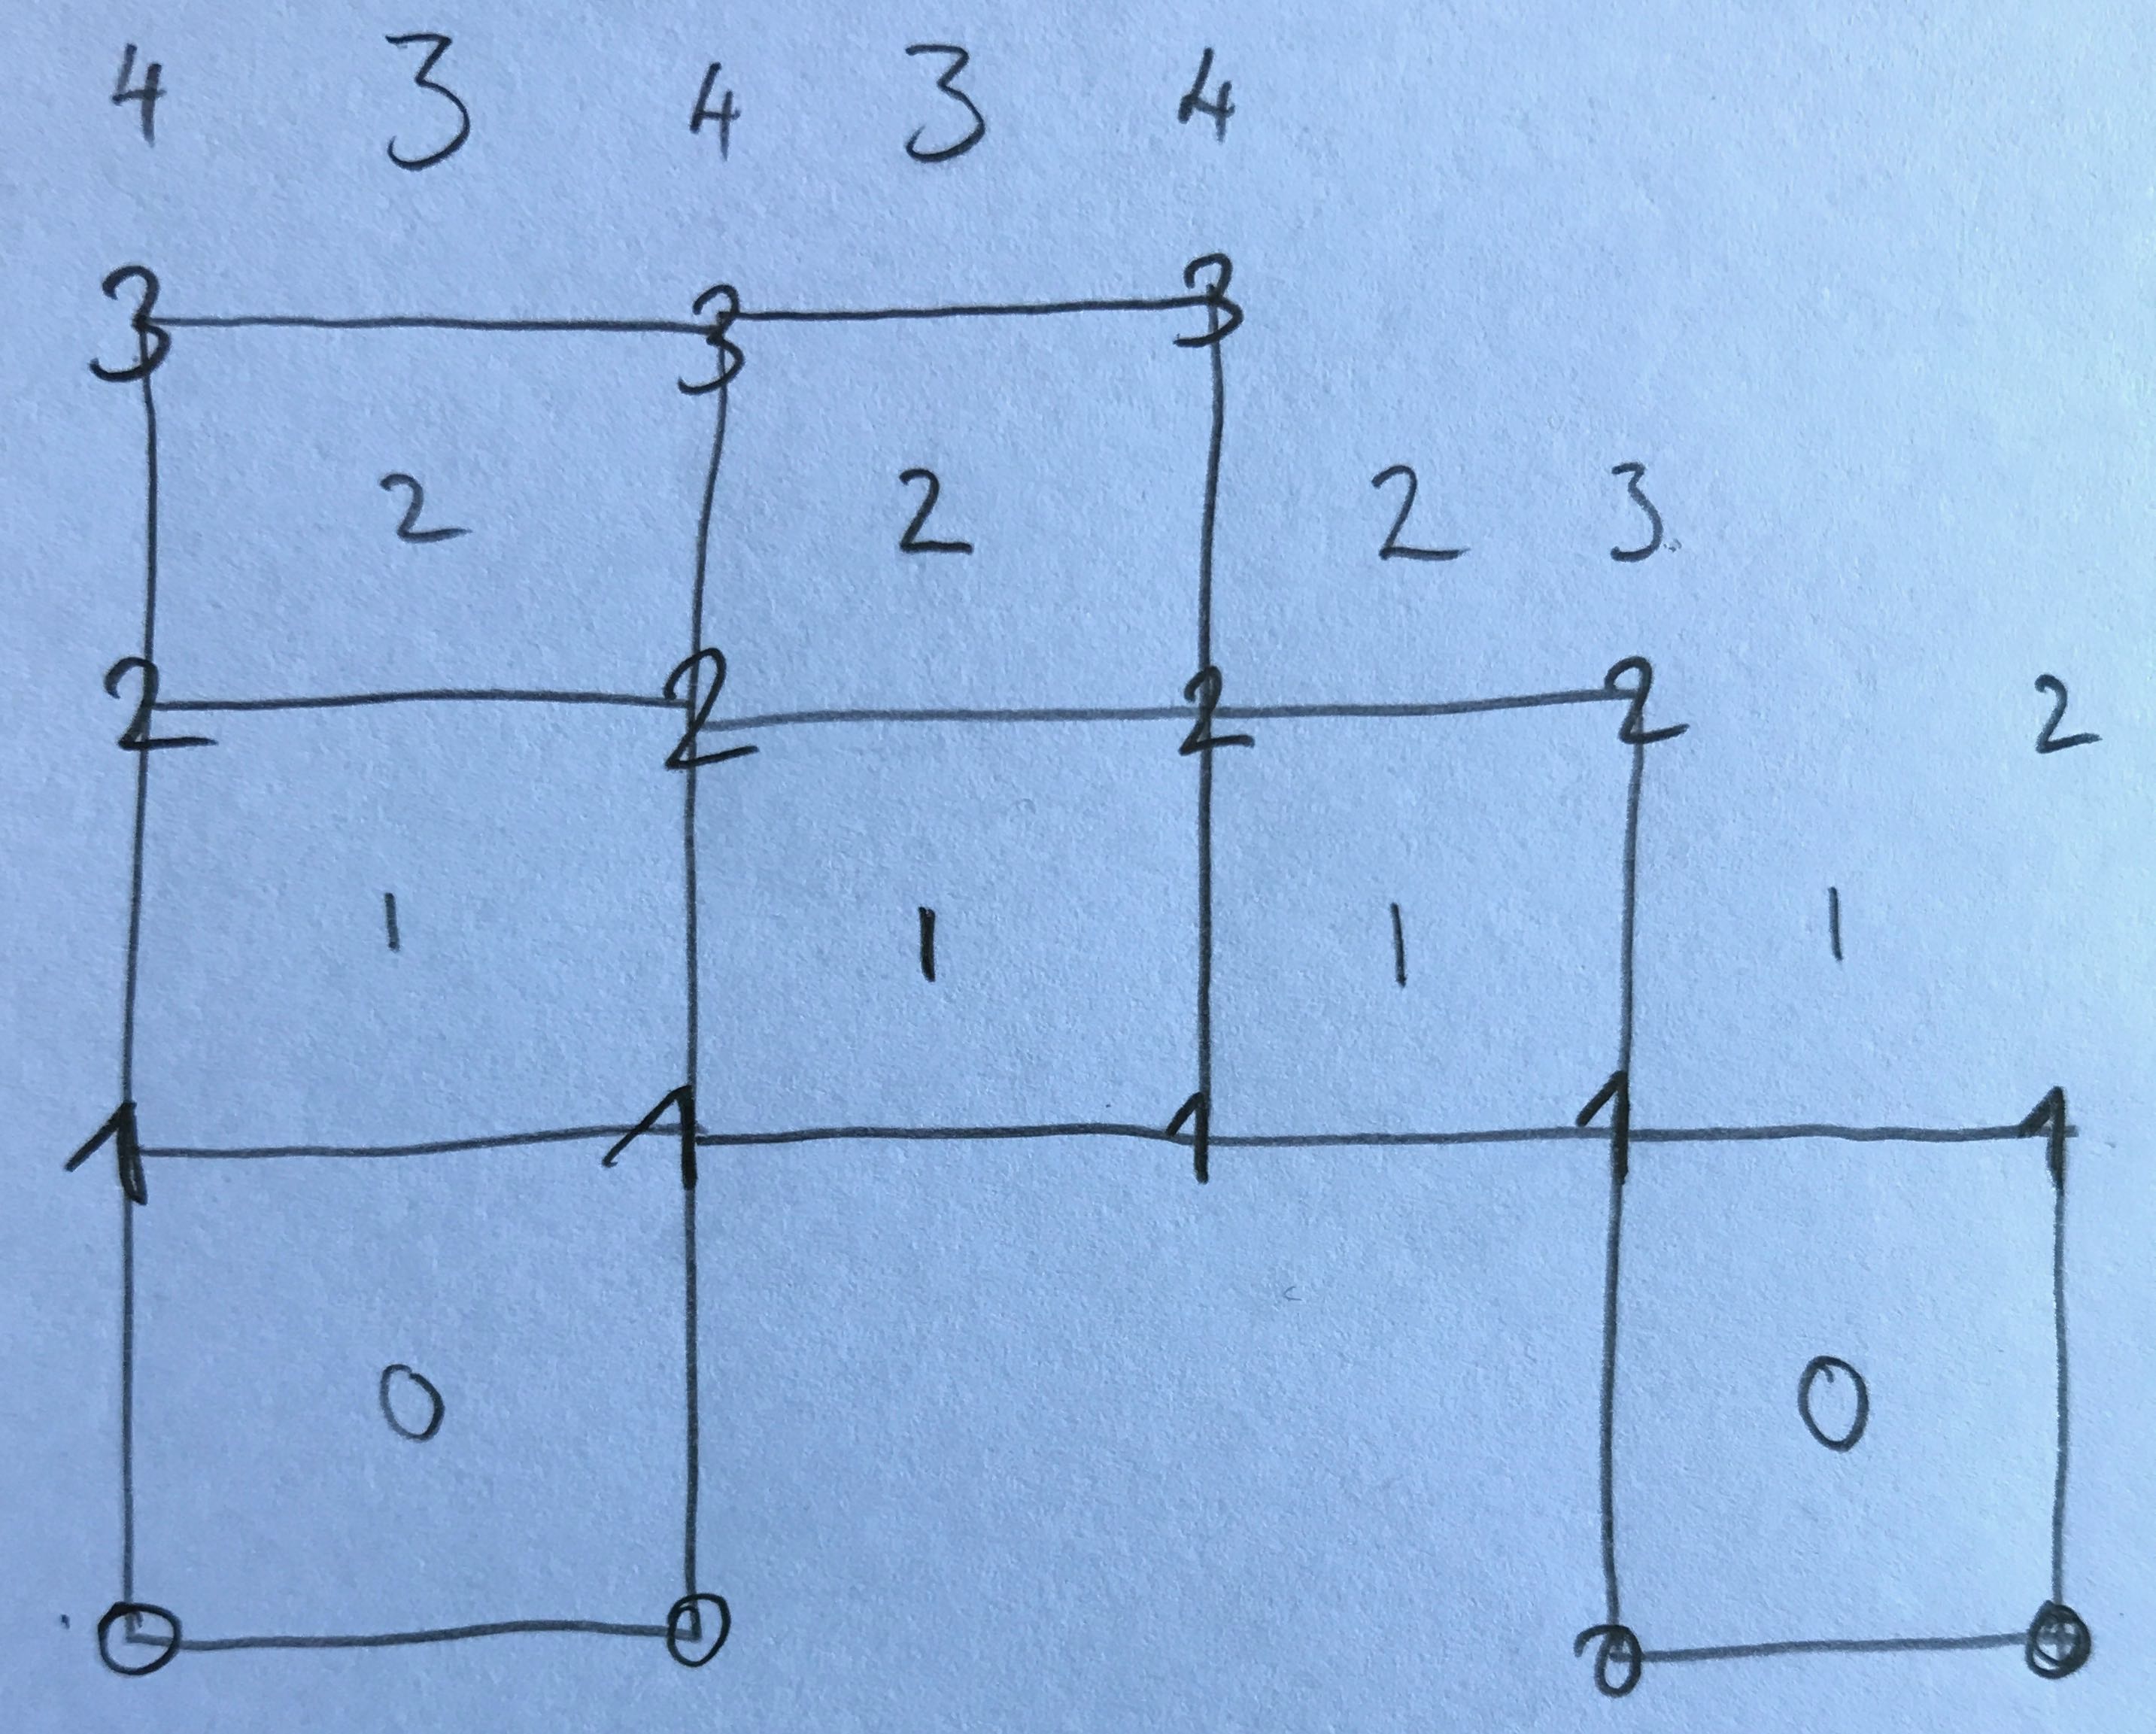 4 3 4 3 4
3 3 3
2 2 2 3
2 2 2 2 2
1 1 1 1
1 1 1 1 1
0 0
0 0 0 0